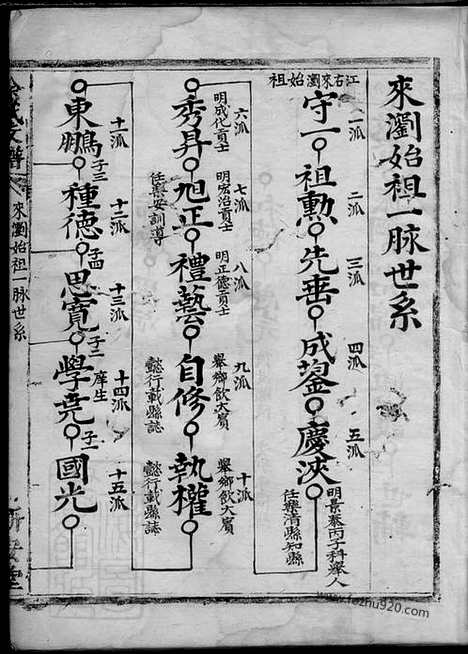 來瀏始祖一脉世系
江右來瀏始祖
一派 守一
二派 祖勳
三派 先垂
四派 成蓥
五派 慶浹
明景泰丙子科舉人
任樂清縣知縣
六派 秀昇
明成化貢士
七派 旭正
明宏治貢士
任樂安訓導
八派 禮藝
明正德貢士
九派 自修
舉鄉飲大賓
懿行載縣誌
十派 執權
舉鄉飲大賓
懿行載縣誌
十一派 東鵬
子三
十二派 種德
子四
十三派 思寬
子二
十四派 學堯
庠生
子一
十五派 國光
來瀏始祖一脉世系
www.fozhu920.com